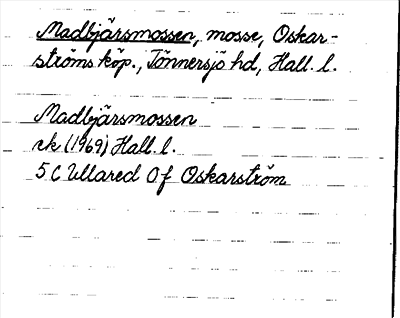 Madbjärsmossen, mosse, Oskar-
ströms köp., Tönnersjö hd, Hall. l.
Madbjärsmossen
rk (1969) Hall. l.
5 C Ullared 0 f Oskarström